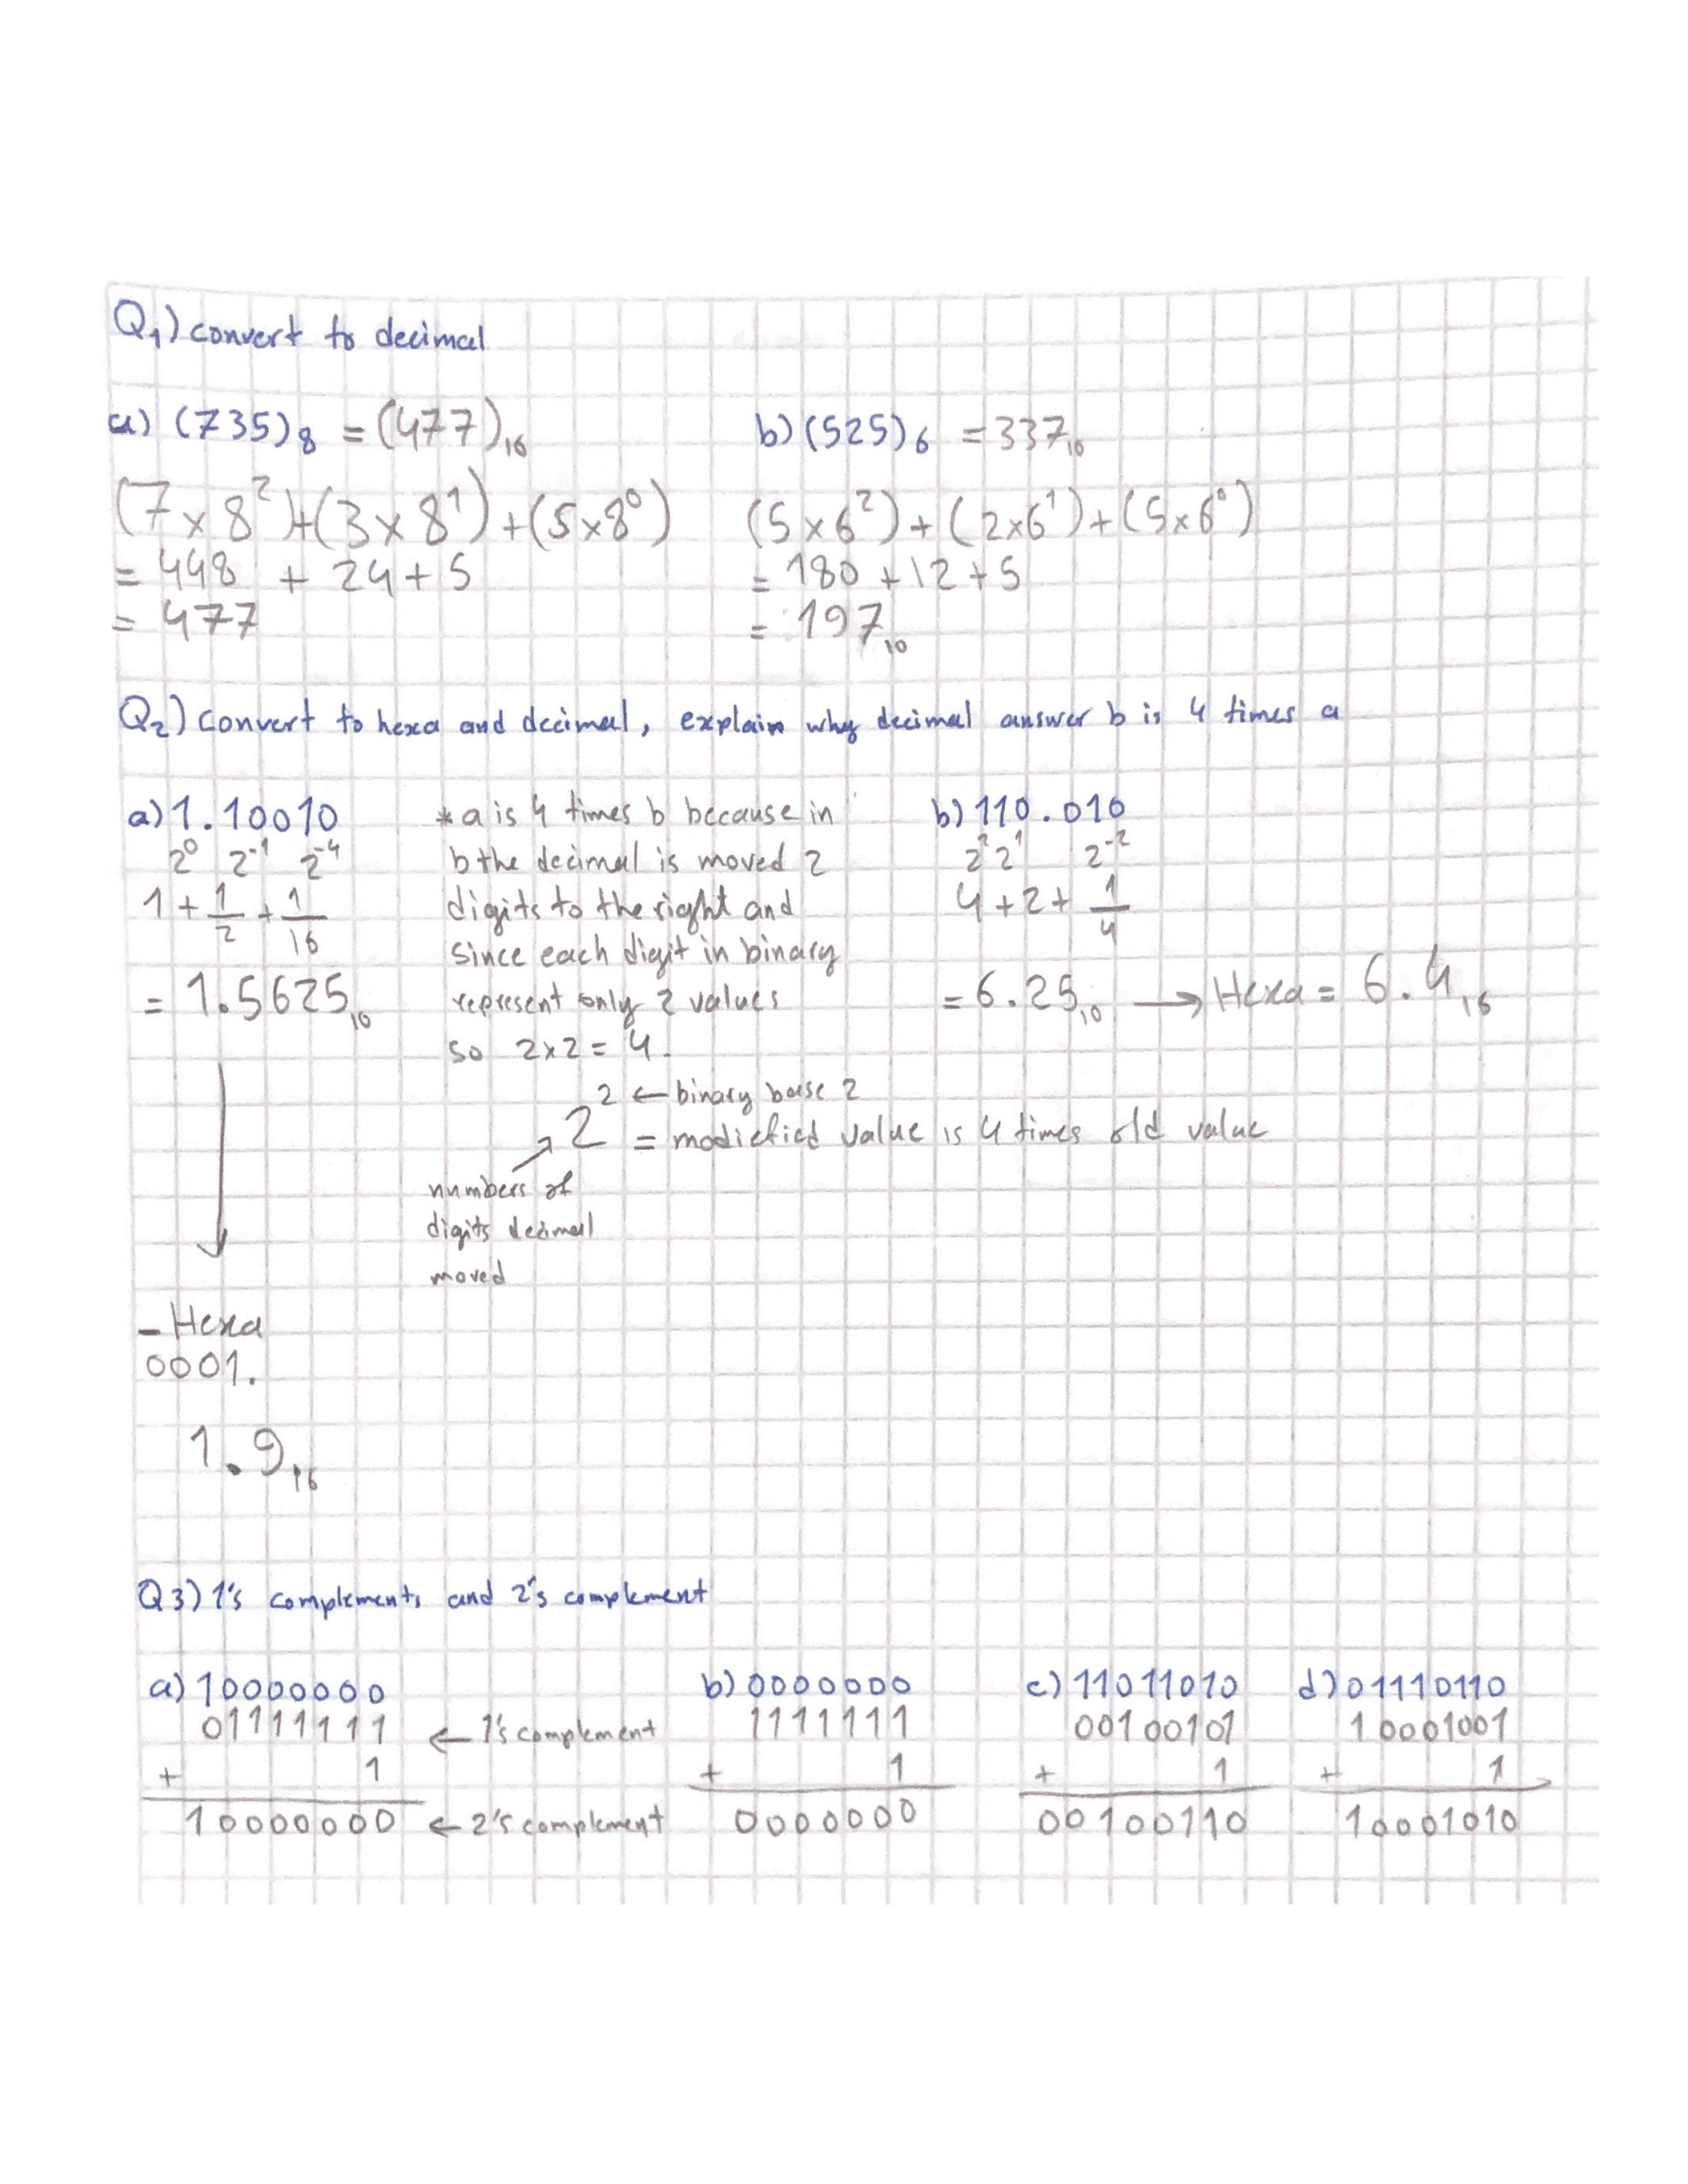 Q1) convert to decimal
a) (735)8 = (477)16
b) (525)6 = 33710
(7 x 8²)+(3 x 8¹)+(5x8⁰)
= 448 + 24+5
= 477
(5 x6²)+(2x6¹)+(5x6⁰)
= 180 +12+5
= 19710
Q2) convert to hexa and decimal, explain why decimal answer b is 4 times a
a) 1.10010
2⁰ 2⁻¹ 2⁻⁴
1 + 1/2 + 1/16
= 1.562510
* a is 4 times b because in
b the decimal is moved 2
digits to the right and
since each digit in binary
represent only 2 values
so 2x2= 4.
2 ← binary base 2
2 = modiefied value is 4 times old value
numbers of
digits decimal
moved
b) 110.010
2² 2¹ 2⁻²
4 +2+ 1/4
= 6.2510 → Hexa = 6.416
- Hexa
0001.
1.916
Q3) 1's complement, and 2's complement
a) 10000000
01111111 ← 1's complement
+ 1
10000000 ← 2's complement
b) 0000000
1111111
+ 1
0000000
c) 11011010
00100101
+ 1
00100110
d) 01110110
10001001
+ 1
10001010